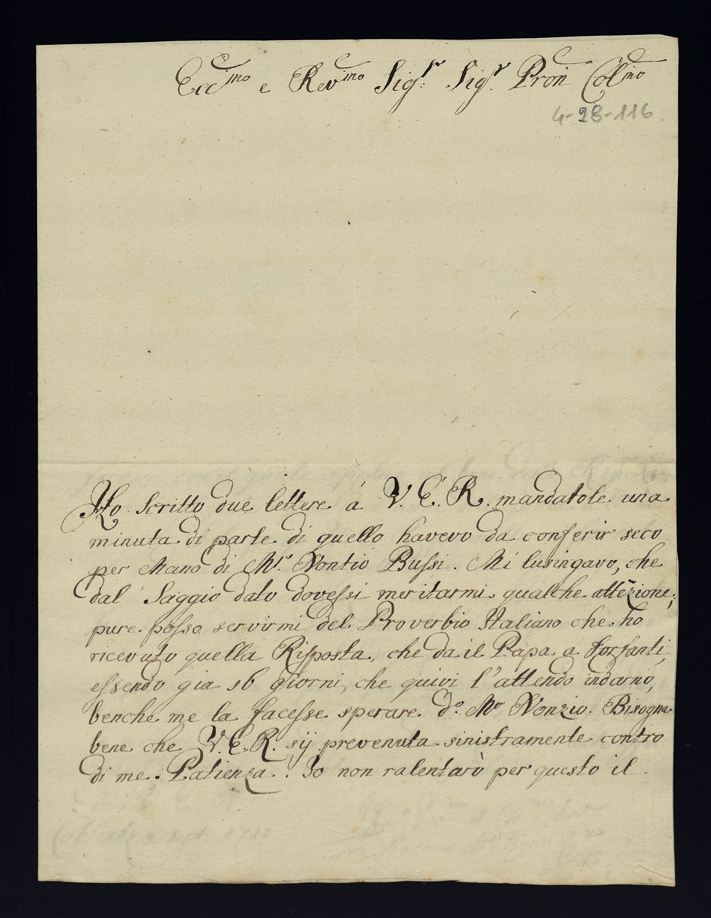 Ecc.mo e Rev.mo Sig.r Sig.r Pron Col.mo
4-28-116
Ho scritto due lettere á V. E. R. mandatole una
minuta di parte di quello havevo da conferir seco
per mano di M.r Pontio Bussi. Mi lusingavo, che
dal Saggio dato dovessi meritarmi qualche attēzione;
pure posso servirmi del Proverbio Italiano che ho
ricevuto quella Risposta, che da il Papa a Forfanti,
essendo gia 16 Giorni, che quivi l'attendo indarno,
benche me la facesse sperare d.o M.r Ponzio. Bisogna
bene che V. E. R. sij prevenuta sinistramente contro
di me. Patienza. Io non ralentarò per questo il